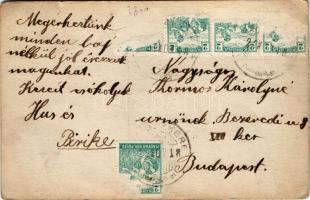 Megerkeztünk
minden baj
nélkül jól érezzük
magunkat.
Kezeit csókolják
Hus és
Börike
Nagyságos
Kormos Károlyné
urnőnek Bezeredi u 8
VIII ker
Budapest.
18